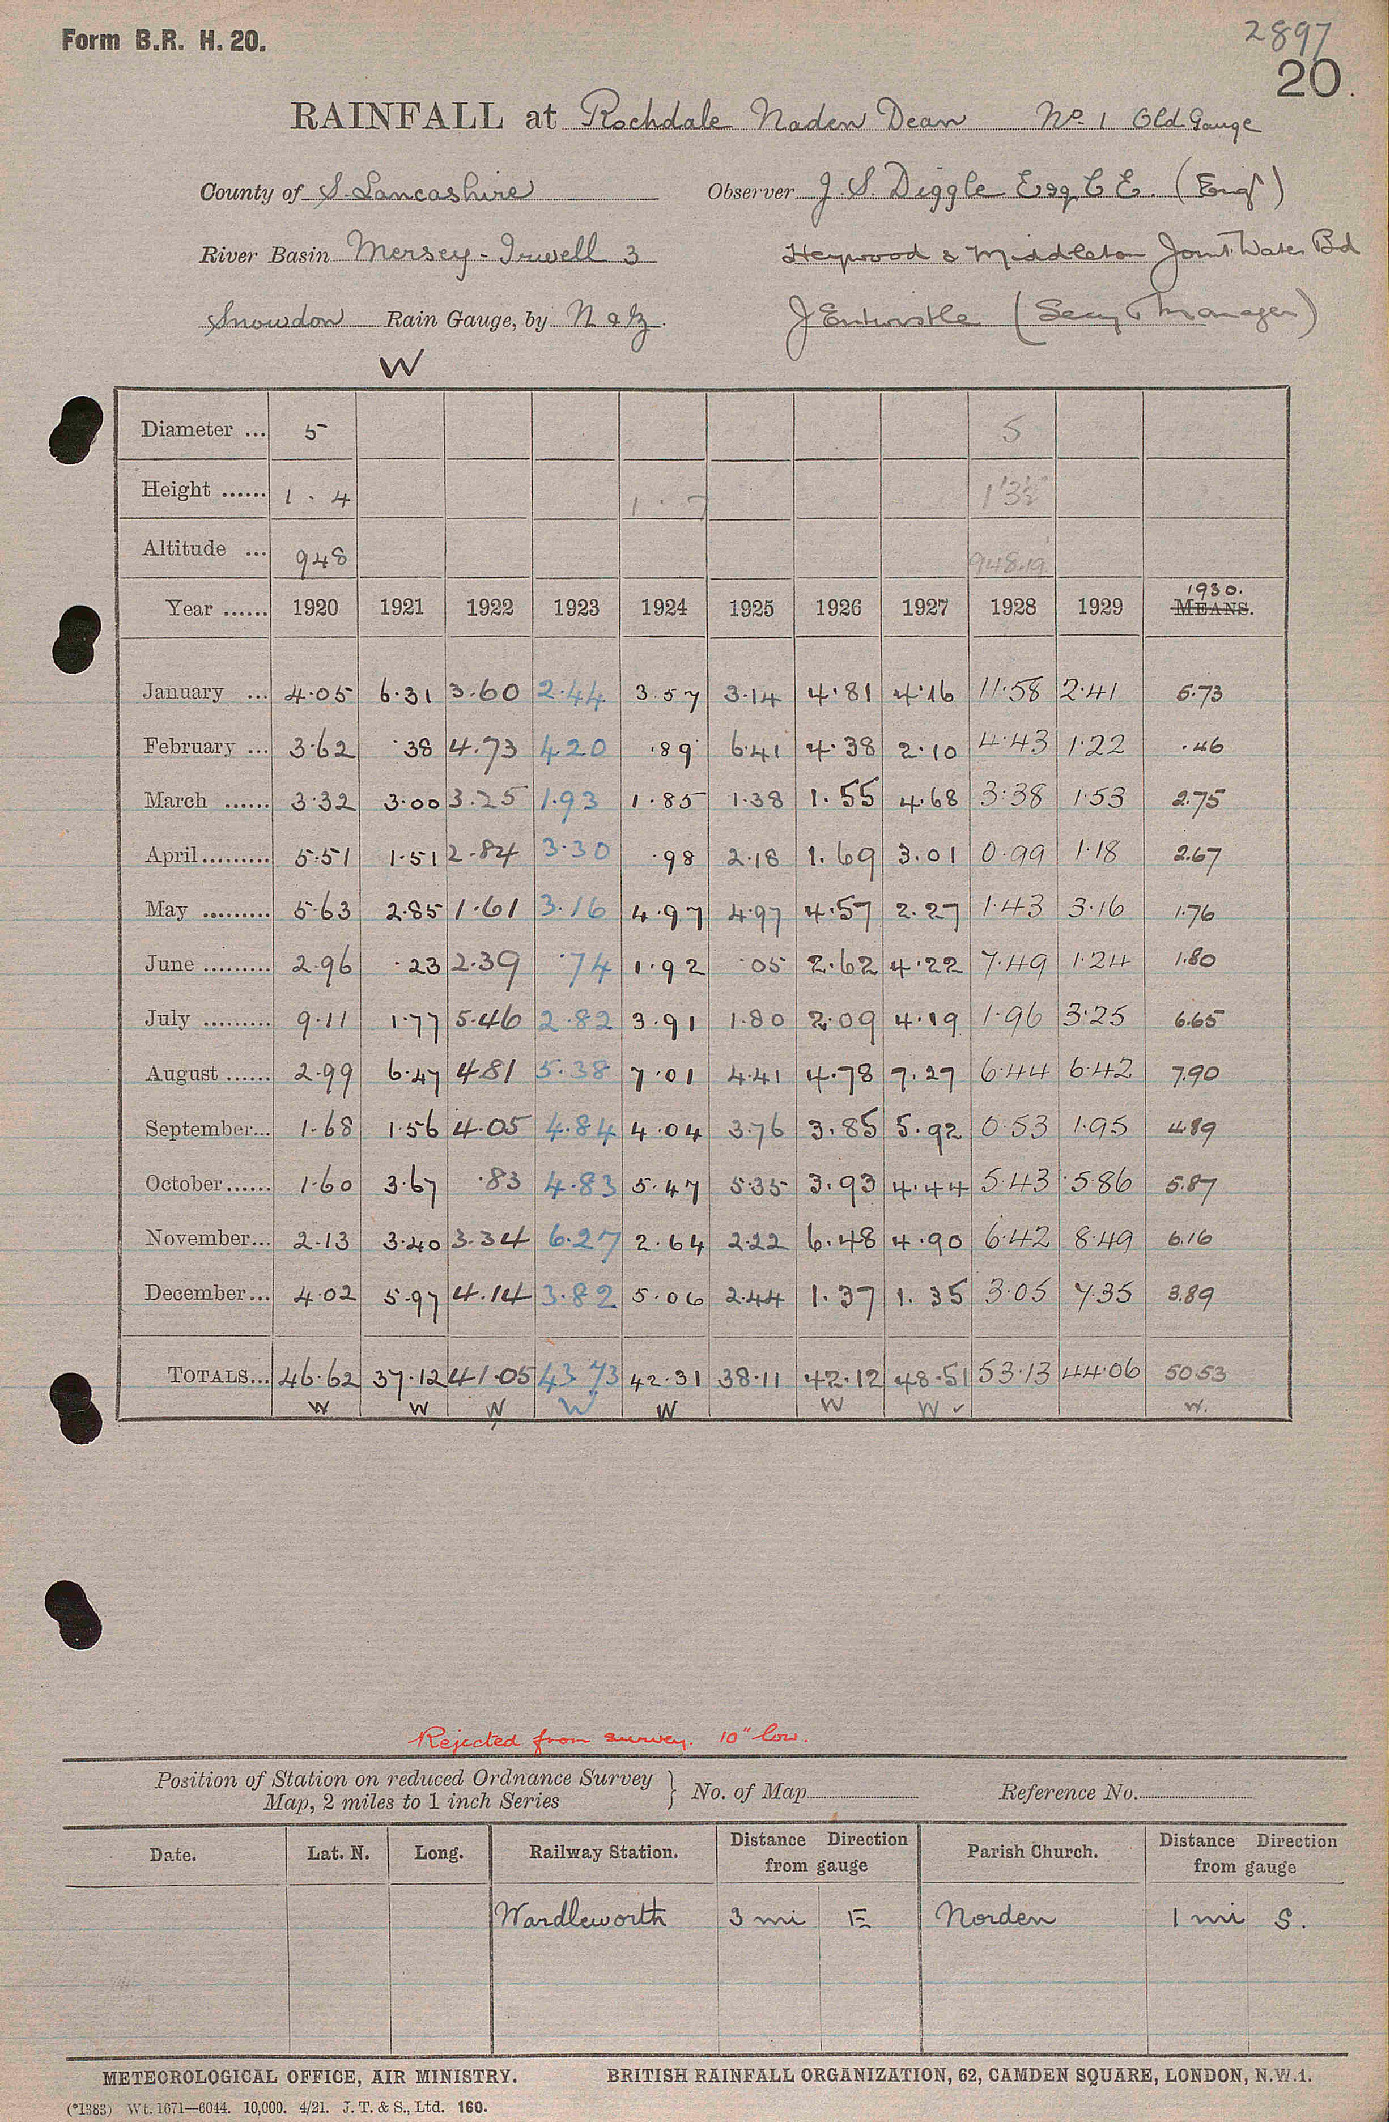 Form B.R. H. 20.
2897
20.
RAINFALL at Rochdale Naden Dean No 1 Old Gauge
County of S. Lancashire
Observer J. S. Diggle Esq C E. (Engr)
River Basin Mersey - Irwell 3
Heywood & Middleton Joint Water Bd
Snowdon Rain Gauge, by N & Z.
J Entwistle (Secy & Manager)
W
Diameter ... 5 5
Height ...... 1 . 4 1 . 7 1'3½"
Altitude ... 948 948.19
Year ...... 1920 1921 1922 1923 1924 1925 1926 1927 1928 1929 1930. MEANS.
January ... 4.05 6.31 3.60 2.44 3.57 3.14 4.81 4.16 11.58 2.41 5.73
February ... 3.62 .38 4.73 4.20 .89 6.41 4.38 2.10 4.43 1.22 .46
March ...... 3.32 3.00 3.25 1.93 1.85 1.38 1.55 4.68 3.38 1.53 2.75
April ......... 5.51 1.51 2.84 3.30 .98 2.18 1.69 3.01 0.99 1.18 2.67
May ......... 5.63 2.85 1.61 3.16 4.97 4.97 4.57 2.27 1.43 3.16 1.76
June ......... 2.96 .23 2.39 .74 1.92 .05 2.62 4.22 7.49 1.24 1.80
July ......... 9.11 1.77 5.46 2.82 3.91 1.80 2.09 4.19 1.96 3.25 6.65
August ...... 2.99 6.47 4.81 5.38 7.01 4.41 4.78 7.27 6.44 6.42 7.90
September... 1.68 1.56 4.05 4.84 4.04 3.76 3.85 5.92 0.53 1.95 4.89
October...... 1.60 3.67 .83 4.83 5.47 5.35 3.93 4.44 5.43 5.86 5.87
November... 2.13 3.40 3.34 6.27 2.64 2.22 6.48 4.90 6.42 8.49 6.16
December... 4.02 5.97 4.14 3.82 5.06 2.44 1.37 1.35 3.05 7.35 3.89
TOTALS... 46.62 37.12 41.05 43.73 42.31 38.11 42.12 48.51 53.13 44.06 50.53
W W W W W W W ✓ W.
Rejected from survey. 10" low.
Position of Station on reduced Ordnance Survey
Map, 2 miles to 1 inch Series } No. of Map Reference No.
Date. Lat. N. Long. Railway Station. Distance Direction from gauge Parish Church. Distance Direction from gauge
Wardleworth 3 mi E Norden 1 mi S.
METEOROLOGICAL OFFICE, AIR MINISTRY. BRITISH RAINFALL ORGANIZATION, 62, CAMDEN SQUARE, LONDON, N.W.1.
(*1383) Wt. 1671—6044. 10,000. 4/21. J. T. & S., Ltd. 160.